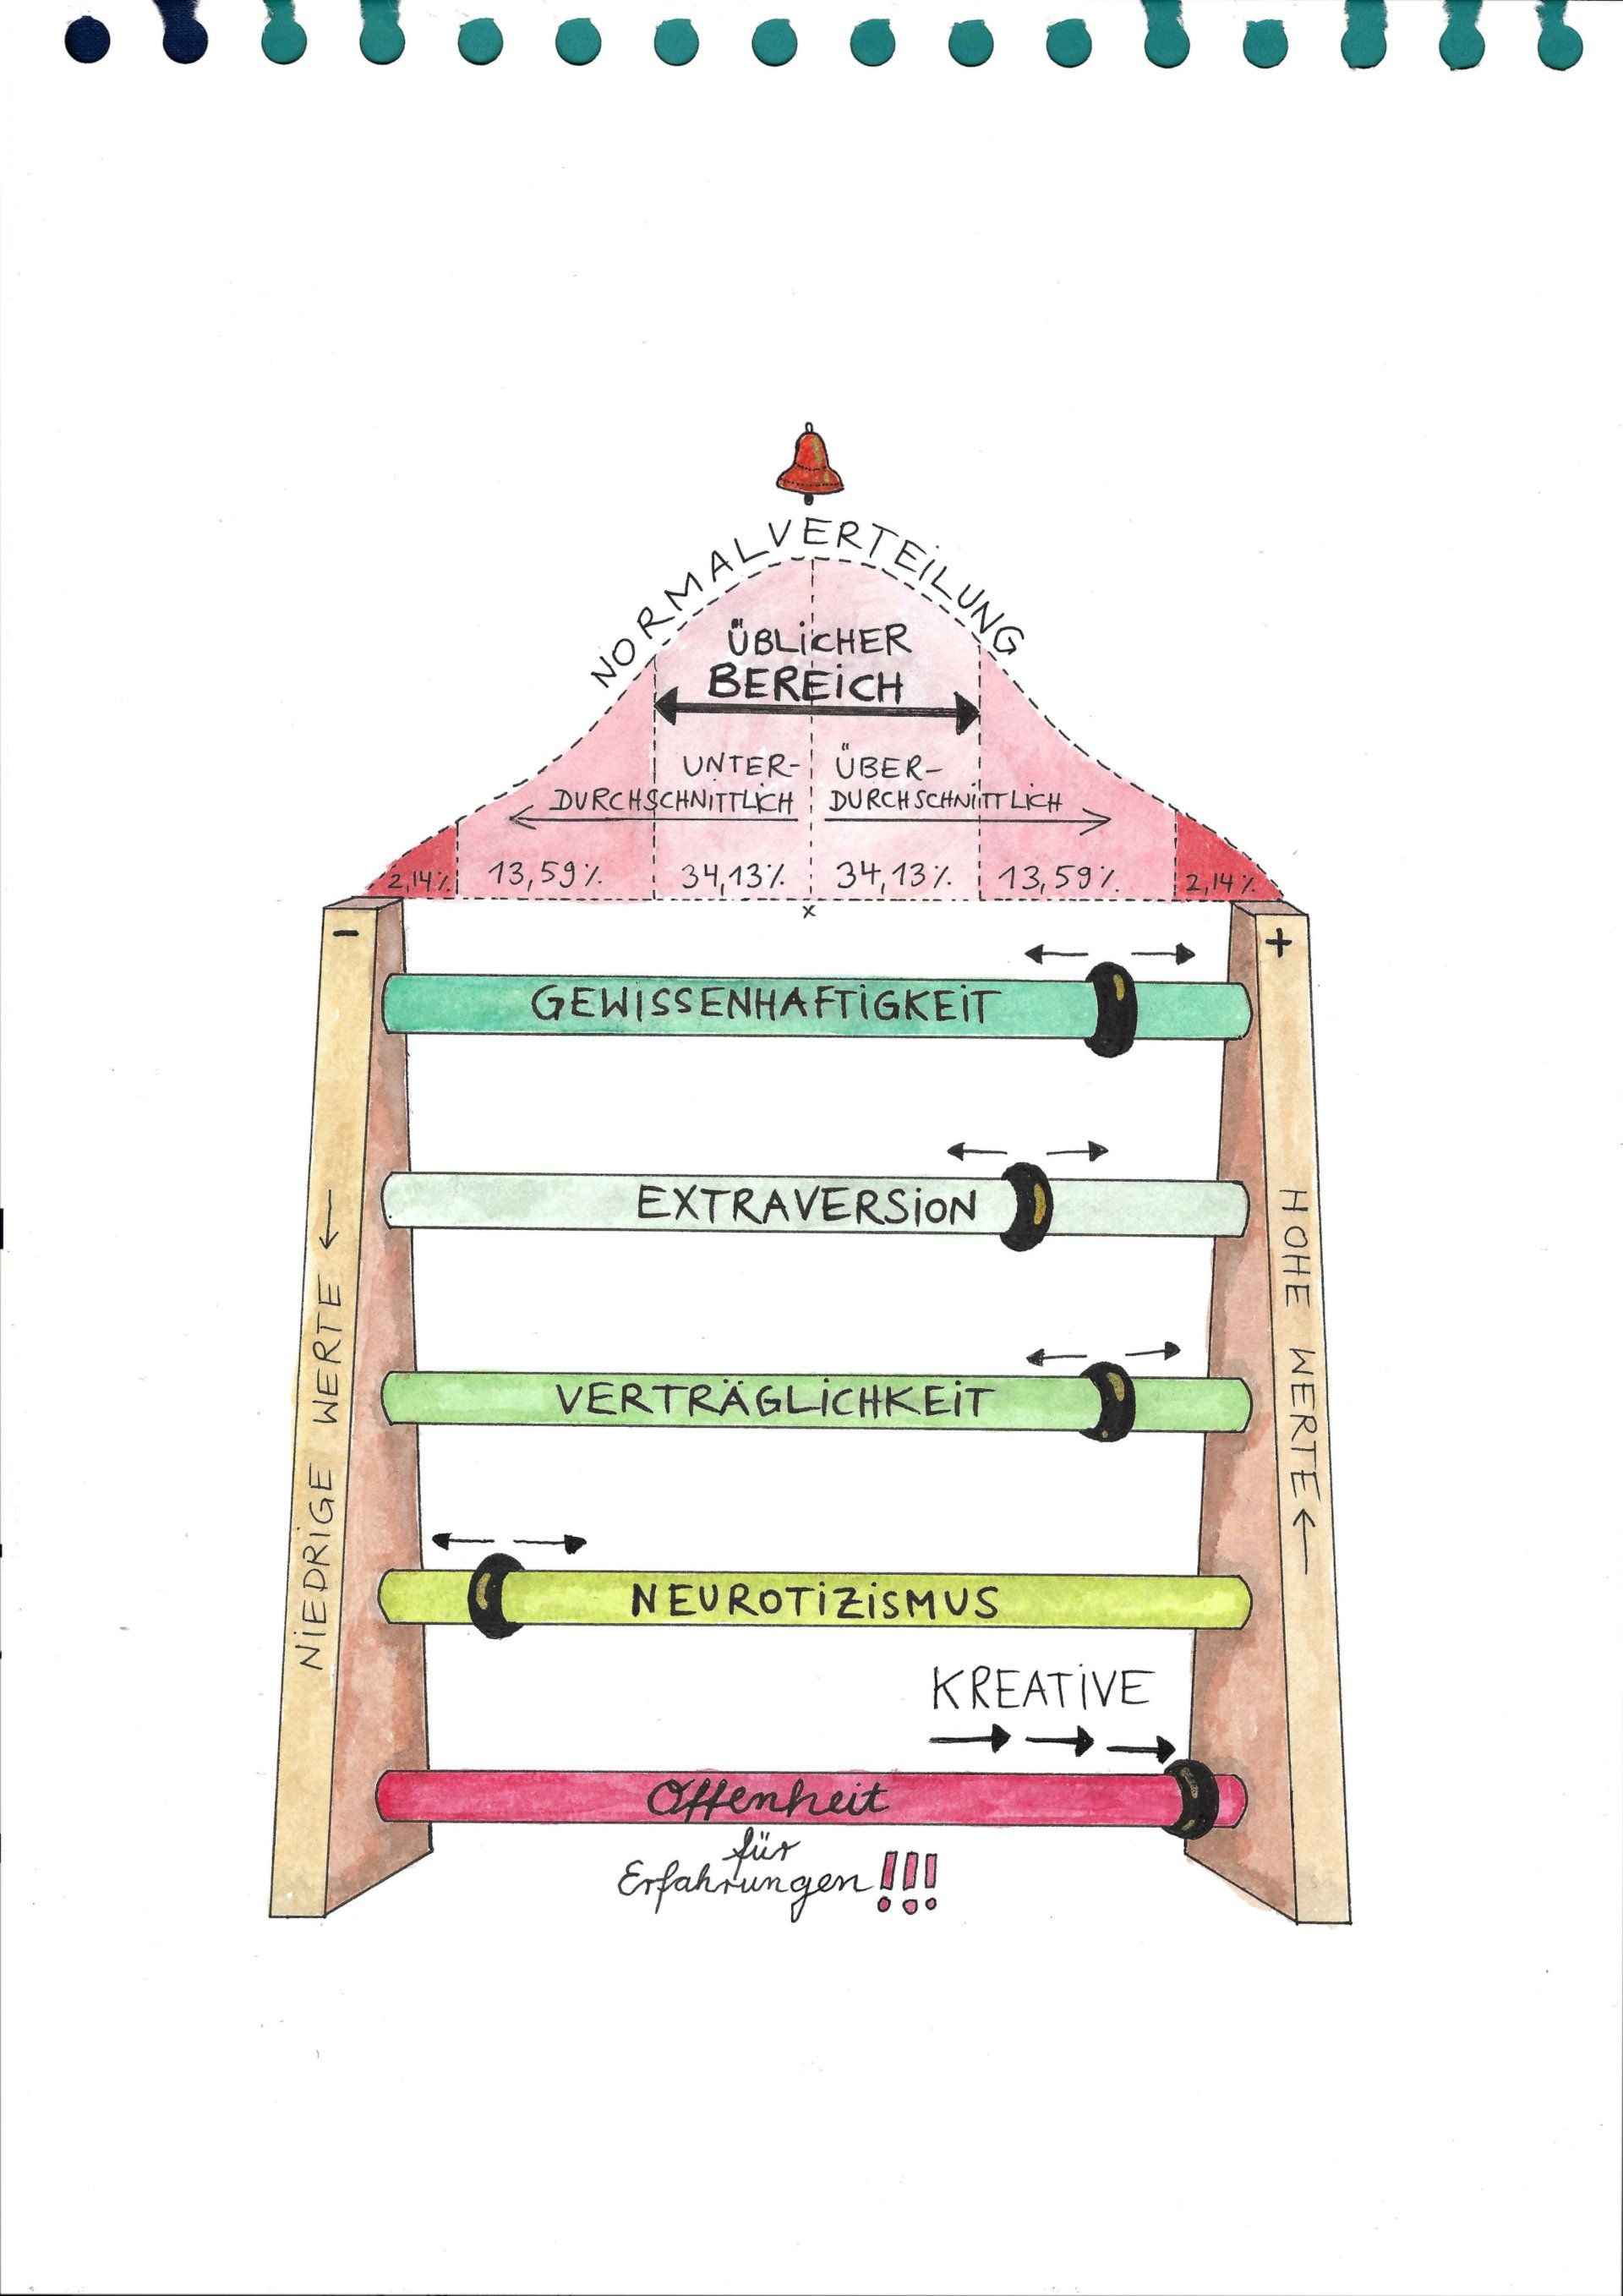 NORMALVERTEILUNG
ÜBLICHER
BEREICH
UNTER-
DURCHSCHNITTLICH
ÜBER-
DURCHSCHNITTLICH
2,14%
13,59%
34,13%
34,13%
13,59%
2,14%
x
-
+
GEWISSENHAFTIGKEIT
EXTRAVERSION
VERTRÄGLICHKEIT
NEUROTIZISMUS
KREATIVE
Offenheit
für
Erfahrungen!!!
NIEDRIGE WERTE
HOHE WERTE